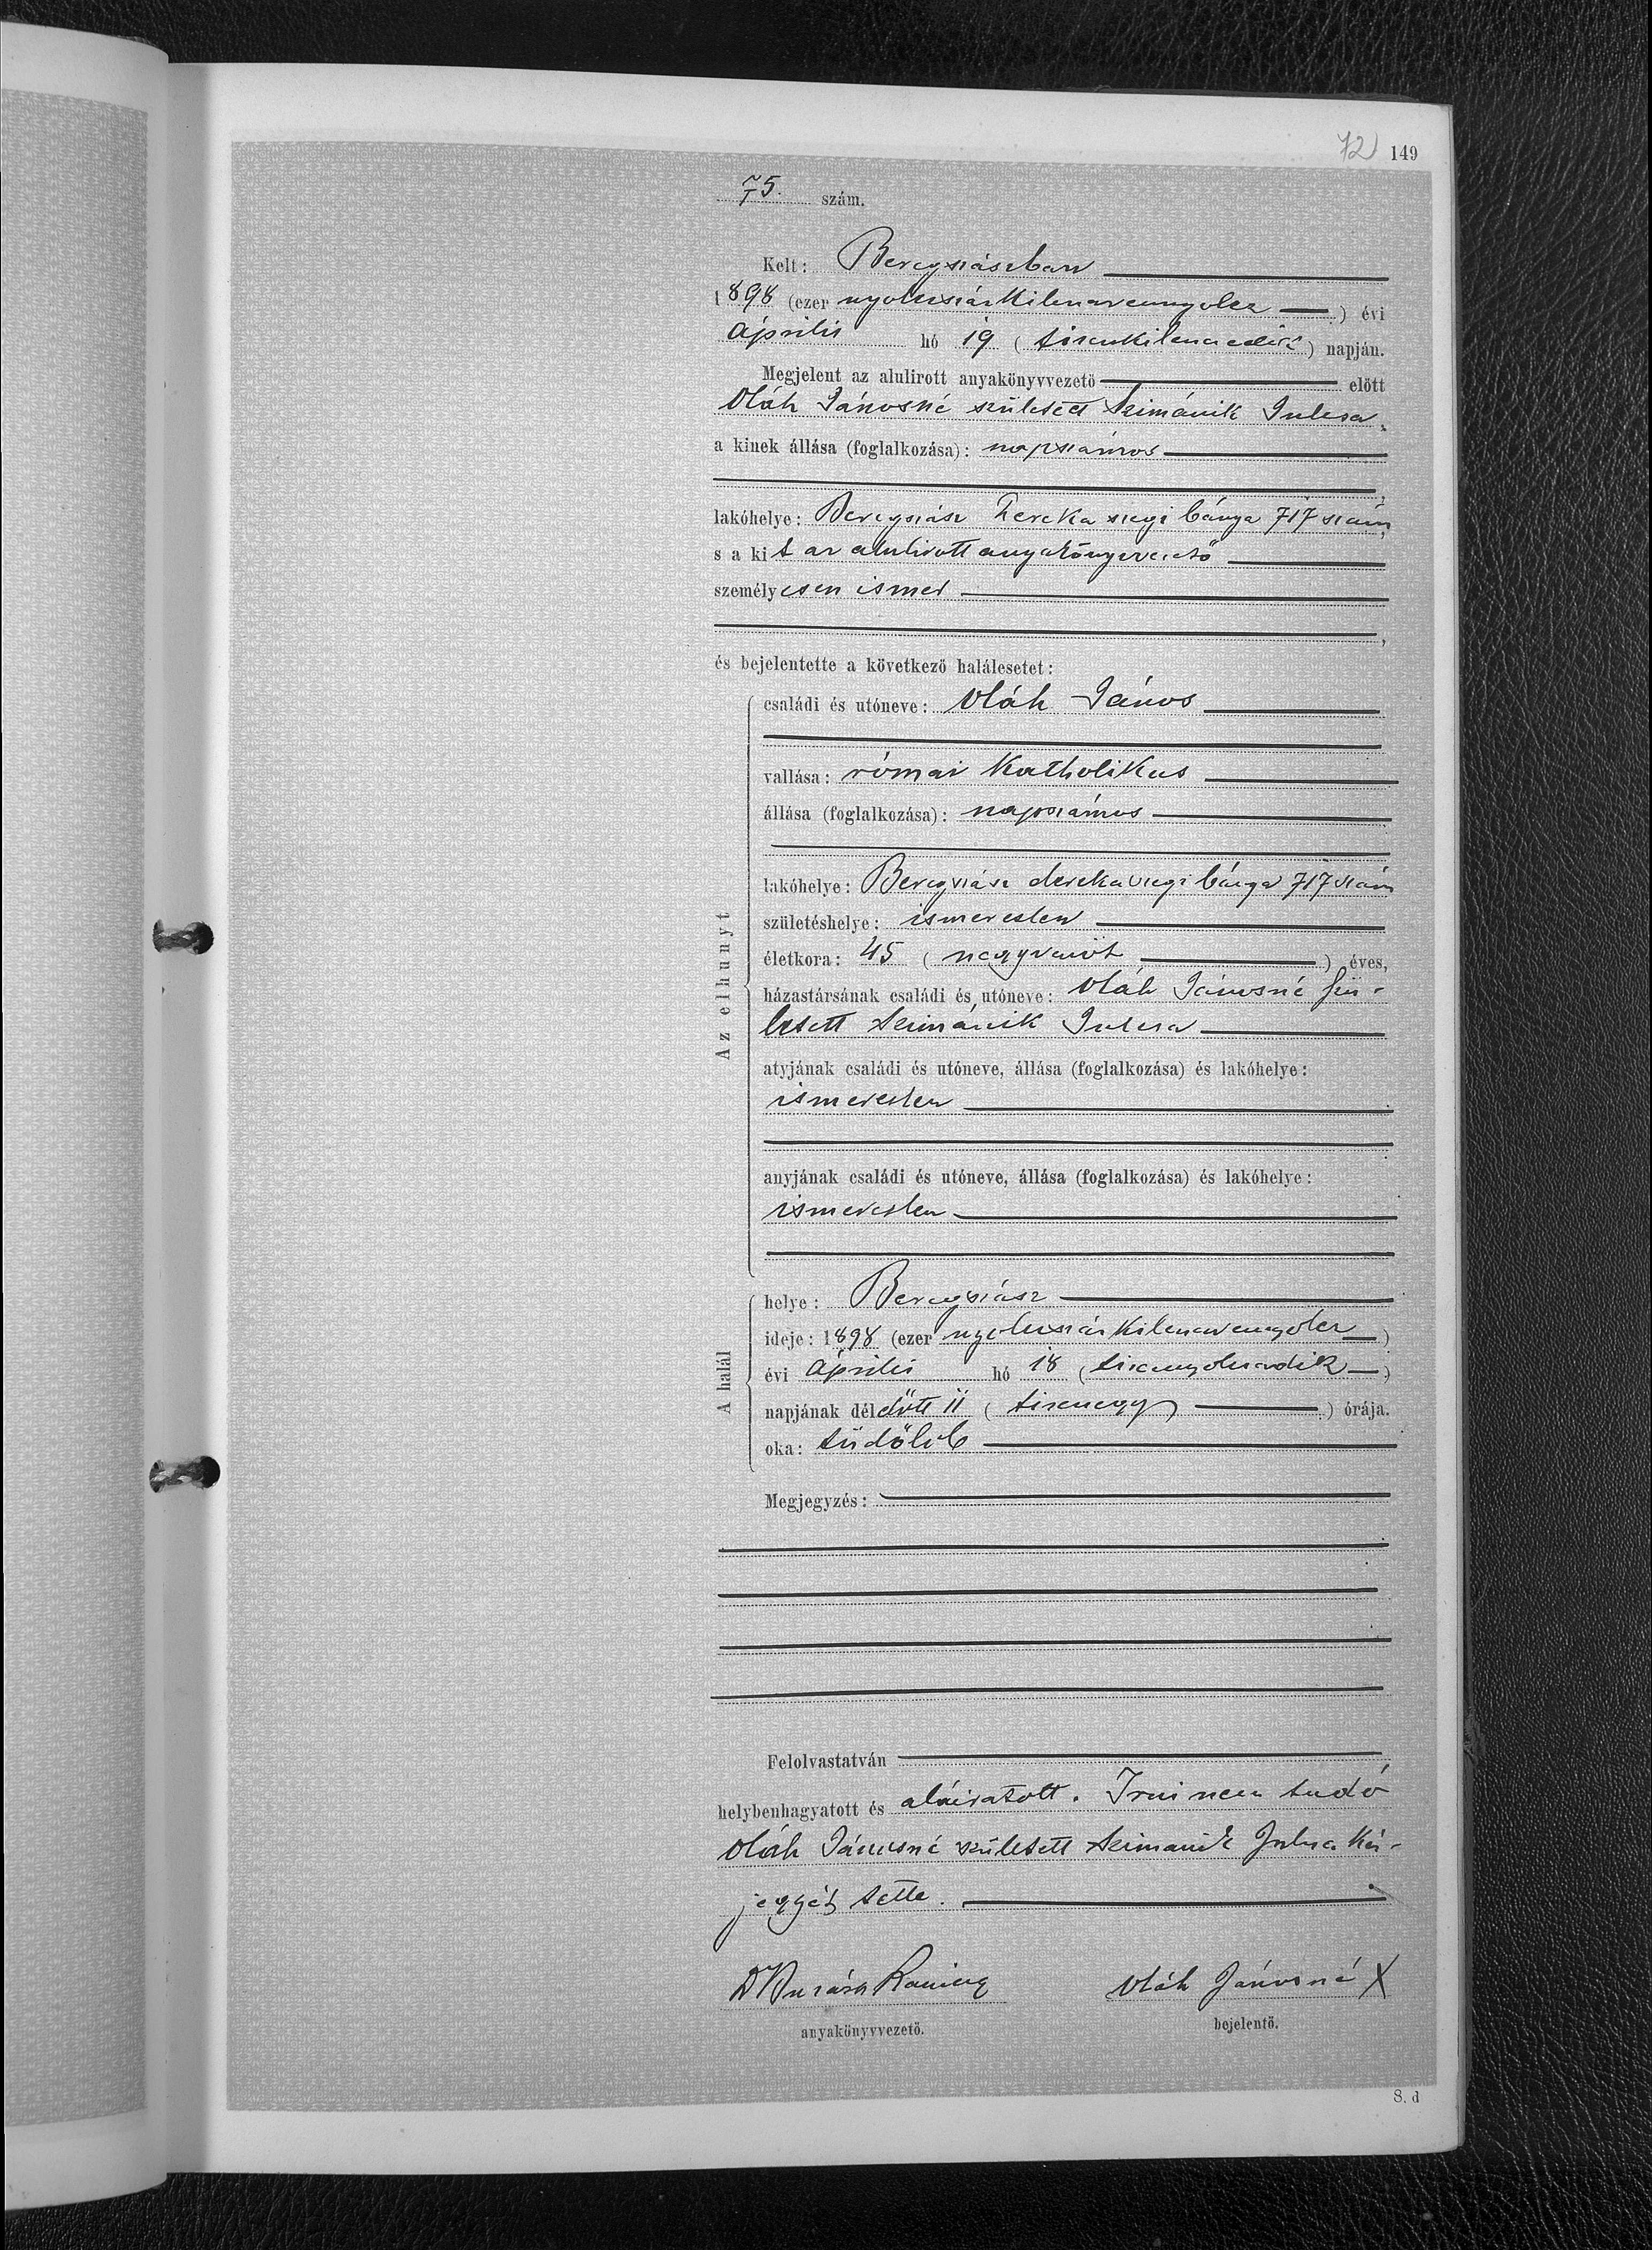 72 149
75. szám.
Kelt: Beregszászban
1898 (ezer nyolczszázkilenczvennyolcz) évi
április hó 19 (tizenkilenczedik) napján.
Megjelent az alulirott anyakönyvvezető előtt
Oláh Jánosné született Szimánik Julcsa,
a kinek állása (foglalkozása): napszámos
,
lakóhelye: Beregszász Dereka szegi bánya 717 szám,
s a kit az alulirott anyakönyvvezető
személyesen ismer
,
és bejelentette a következő halálesetet:
Az elhunyt
családi és utóneve: Oláh János
vallása: római katholikus
állása (foglalkozása): napszámos
lakóhelye: Beregszász dereka szegi bánya 717 szám
születéshelye: ismeretlen
életkora: 45 (negyvenöt) éves,
házastársának családi és utóneve: Oláh Jánosné szü-
letett Szimánik Julcsa
atyjának családi és utóneve, állása (foglalkozása) és lakóhelye:
ismeretlen
anyjának családi és utóneve, állása (foglalkozása) és lakóhelye:
ismeretlen
A halál
helye: Beregszász
ideje: 1898 (ezer nyolczszázkilenczvennyolcz)
évi április hó 18 (tizennyolczadik)
napjának délelőtt 11 (tizenegy) órája.
oka: tüdőlob
Megjegyzés:
Felolvastatván
helybenhagyatott és aláiratott. Irni nem tudó
Oláh Jánosné született Szimanik Julcsa kéz-
jegyét tette.
Oláh Jánosné X
anyakönyvvezető. bejelentő.
S. d